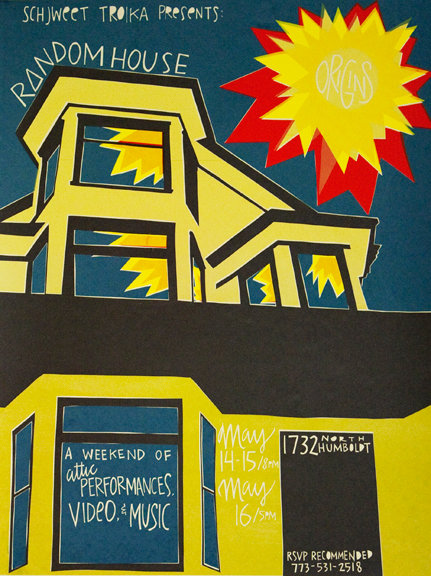 SCHJWEET TROIKA PRESENTS:
RANDOM HOUSE
ORIGINS
A WEEKEND OF
attic
PERFORMANCES,
VIDEO, & MUSIC
May
14-15/8PM
May
16/5PM
1732 NORTH
HUMBOLDT
RSVP RECOMMENDED
773-531-2518